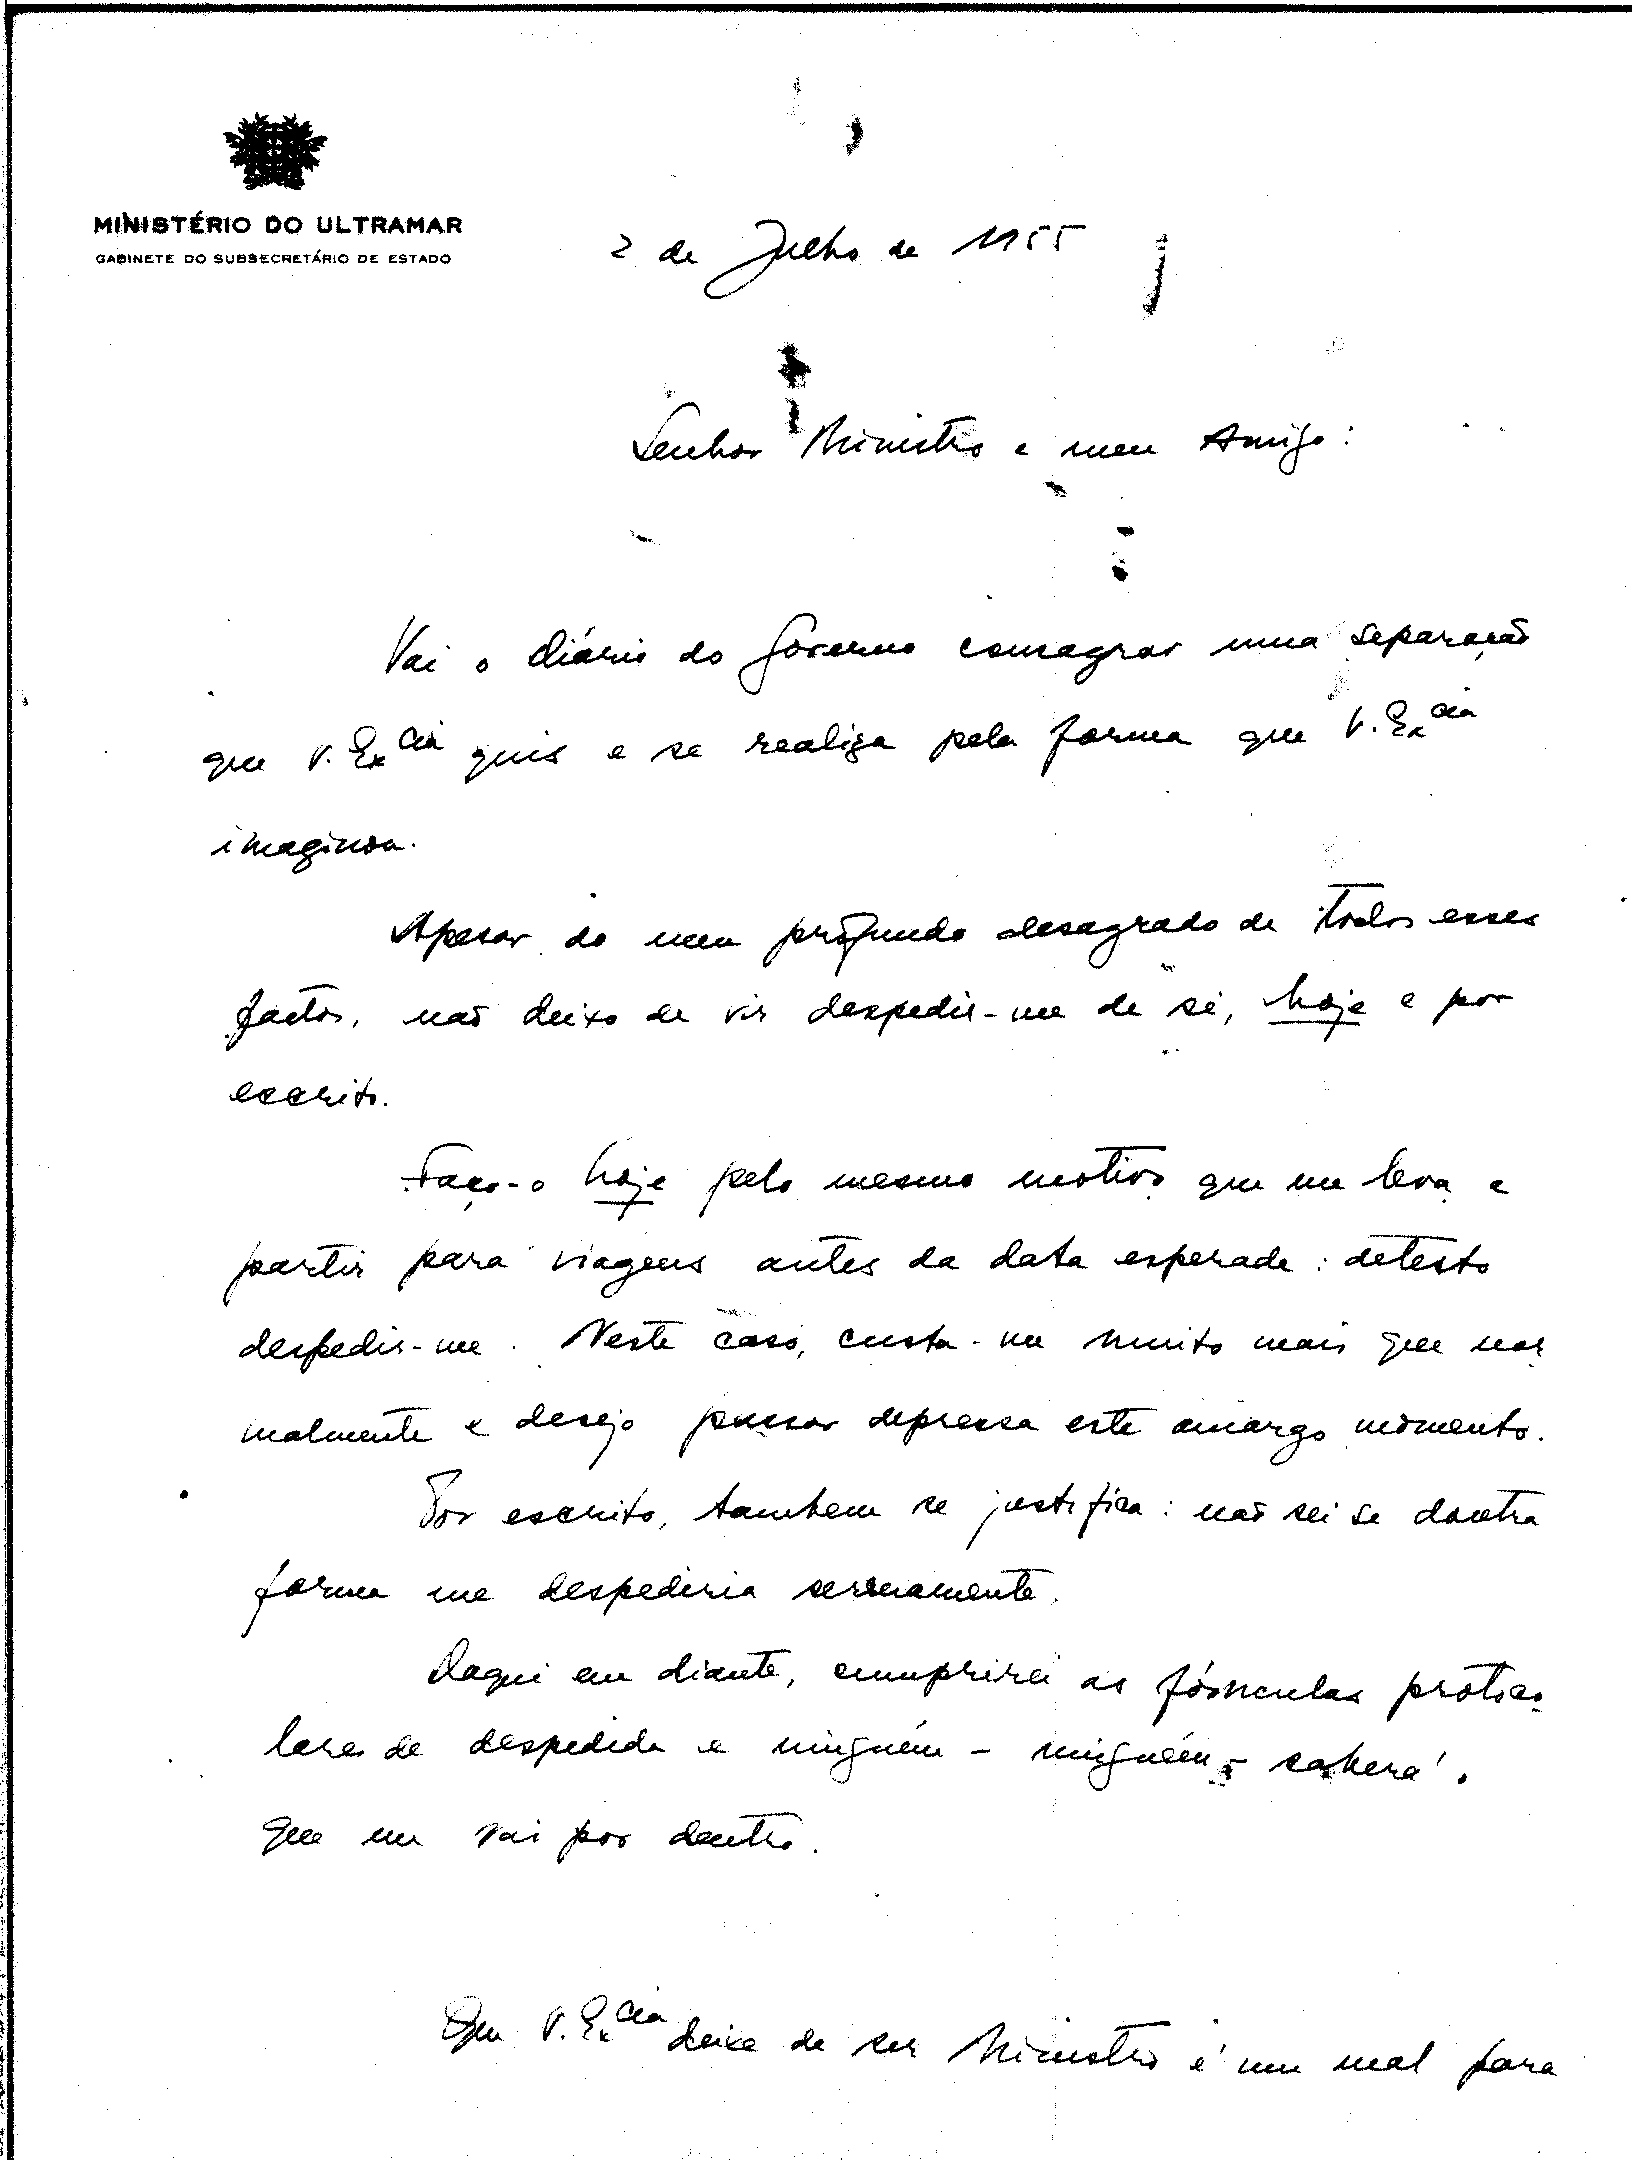 MINISTÉRIO DO ULTRAMAR
GABINETE DO SUBSECRETÁRIO DE ESTADO
2 de Julho de 1955
Senhor Ministro e meu Amigo:
Vai o Diário do Governo consagrar uma separação
que V. Excia quis e se realiza pela forma que V. Excia
imaginou.
Apesar do meu profundo desagrado de todos esses
factos, não deixo de vir despedir-me de si, hoje e por
escrito.
Faço-o hoje pelo mesmo motivo que me leva a
partir para viagens antes da data esperada: detesto
despedir-me. Neste caso, custa-me muito mais que nor
malmente e desejo passar depressa este amargo momento.
Por escrito, tambem se justifica: não sei se doutra
forma me despediria serenamente.
Daqui em diante, cumprirei as fórmulas protoco-
lares de despedida e ninguém - ninguém - saberá o
que me vai por dentro.
Que V. Excia deixe de ser Ministro é um mal para